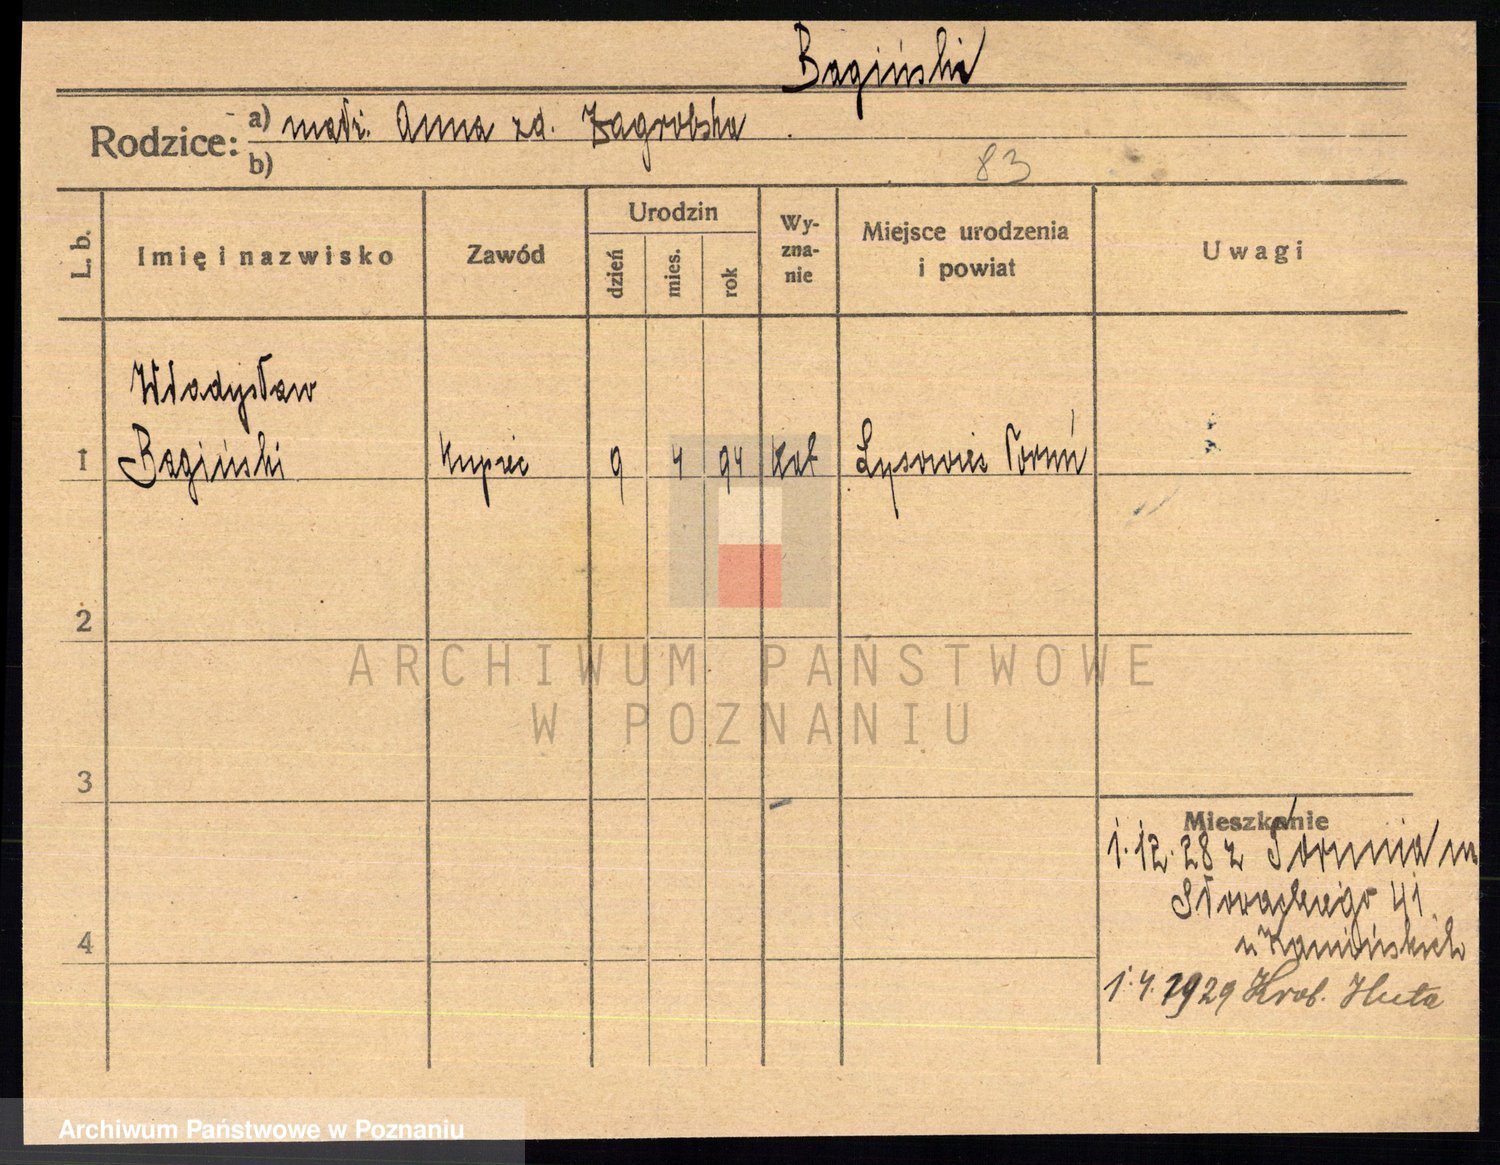 Bagiński
Rodzice: a) matż. Anna zd. Zagrobska
b)
83
L. b.
Imię i nazwisko
Zawód
Urodzin
dzień
mies.
rok
Wy-
zna-
nie
Miejsce urodzenia
i powiat
Uwagi
Władysław
1 Bagiński Kupiec 9 4 94 Kat Toruń
2
ARCHIWUM PAŃSTWOWE
W POZNANIU
3
Mieszkanie
1.12.28 z Torunia
Słowackiego 41
u Kamińskich
4
1.4.1929 Król. Huta
Archiwum Państwowe w Poznaniu